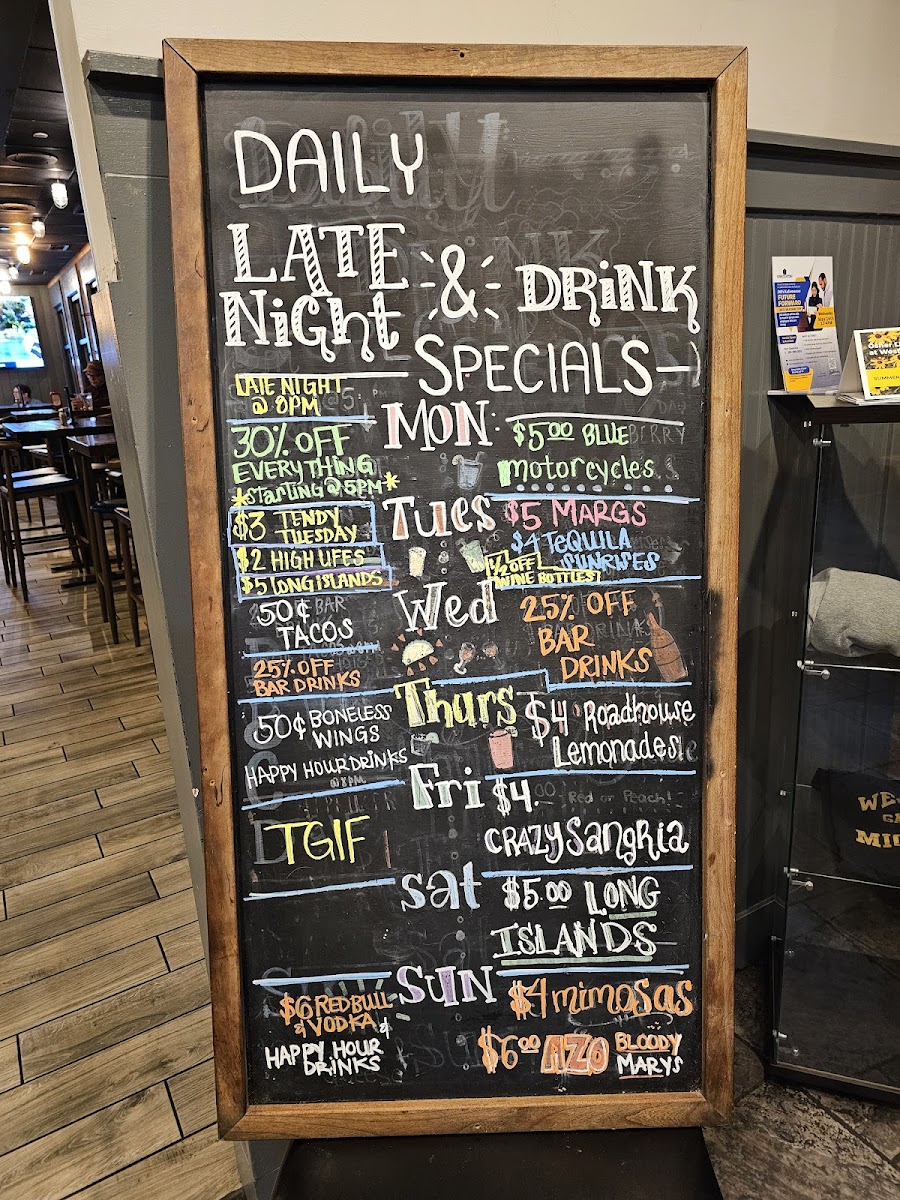 DAILY
LATE
NiGht
& DRiNK
SPECIALS
LATE NIGHT
@ 8PM
MON
30% OFF
EVERYTHING
*Starting @ 5PM*
$5.00 BLUEBERRY
motorcycles
Tues
$3 TENDY
TUESDAY
$2 HIGH LIFES
$5 LONG ISLANDS
$5 MARGS
$4 TEQUILA
SUNRISES
½ OFF
WINE BOTTLES
Wed
50¢ BAR
TACOS
25% OFF
BAR DRINKS
25% OFF
BAR
DRINKS
Thurs
50¢ BONELESS
WINGS
HAPPY HOUR DRINKS
@ 8PM
$4 Roadhouse
Lemonades
Fri
TGIF
$4.00 Red or Peach!
CRAZY SANGRIA
Sat
$5.00 LONG
ISLANDS
SUN
$6 RED BULL
& VODKA &
HAPPY HOUR
DRINKS
$4 mimosas
$6.00 AZO BLOODY
MARYS
FUTURE
FORWARD
SUMMER